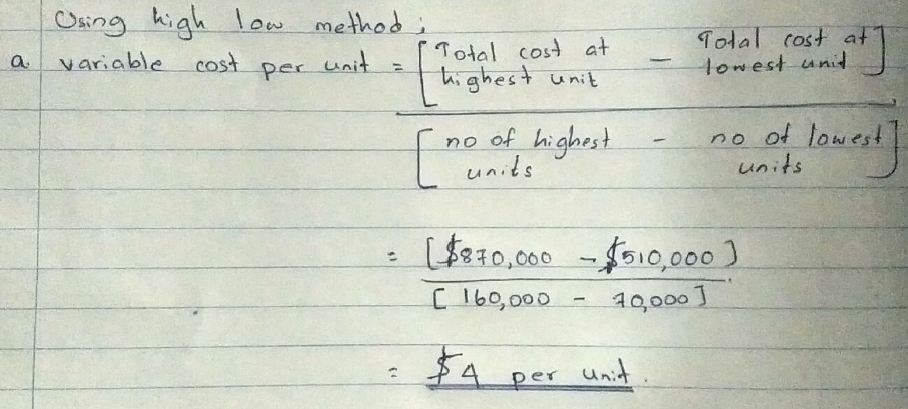 Using high low method;
a. variable cost per unit = [Total cost at highest unit - Total cost at lowest unit]
[no of highest units - no of lowest units]
= [$870,000 - $510,000]
[160,000 - 70,000]
= $4 per unit.